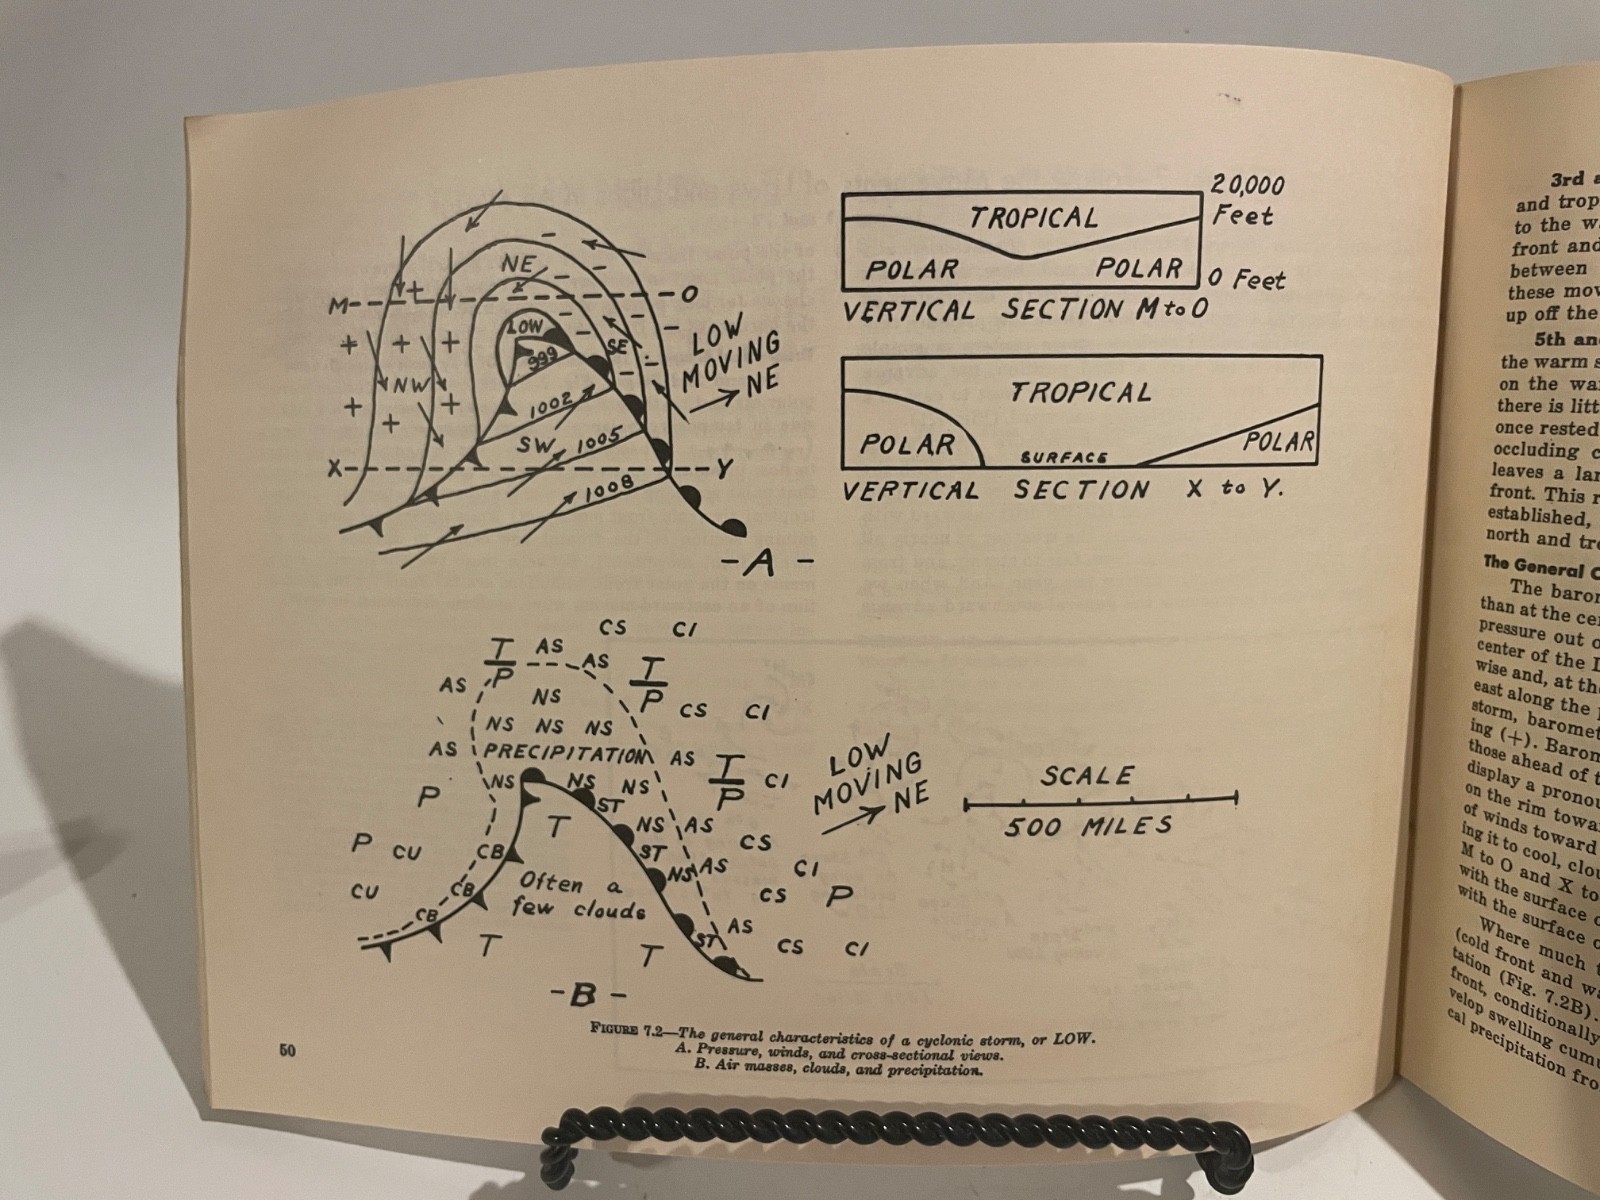 NE
M
O
LOW
999
SE
NW
1002
SW
1005
X
Y
1008
LOW
MOVING
NE
-A-
TROPICAL
POLAR
POLAR
20,000
Feet
0 Feet
VERTICAL SECTION M to O
TROPICAL
POLAR
SURFACE
POLAR
VERTICAL SECTION X to Y.
CS CI
T AS AS T
P P
AS NS CS CI
NS NS NS
AS PRECIPITATION AS T CI
P
NS NS NS
P ST
T NS AS
P CU CB ST CS
NS AS CI
CU CB Often a CS P
few clouds
CB AS
T T ST CS CI
-B-
LOW
MOVING
NE
SCALE
500 MILES
FIGURE 7.2—The general characteristics of a cyclonic storm, or LOW.
A. Pressure, winds, and cross-sectional views.
B. Air masses, clouds, and precipitation.
50
3rd
and trop
to the
front and
between
these mov
up off the
5th
the warm
on the
there is
once rested
occluding
leaves a
front. This
established,
north and
The General
The
than at the
pressure out
center of the
wise and, at
east along the
storm,
ing (+).
those ahead of
display a
on the rim
of winds toward
ing it to cool,
M to O and X to
with the surface
with the surface
Where much
(cold front and
tation (Fig. 7.2B).
front, conditionally
velop swelling
cal precipitation